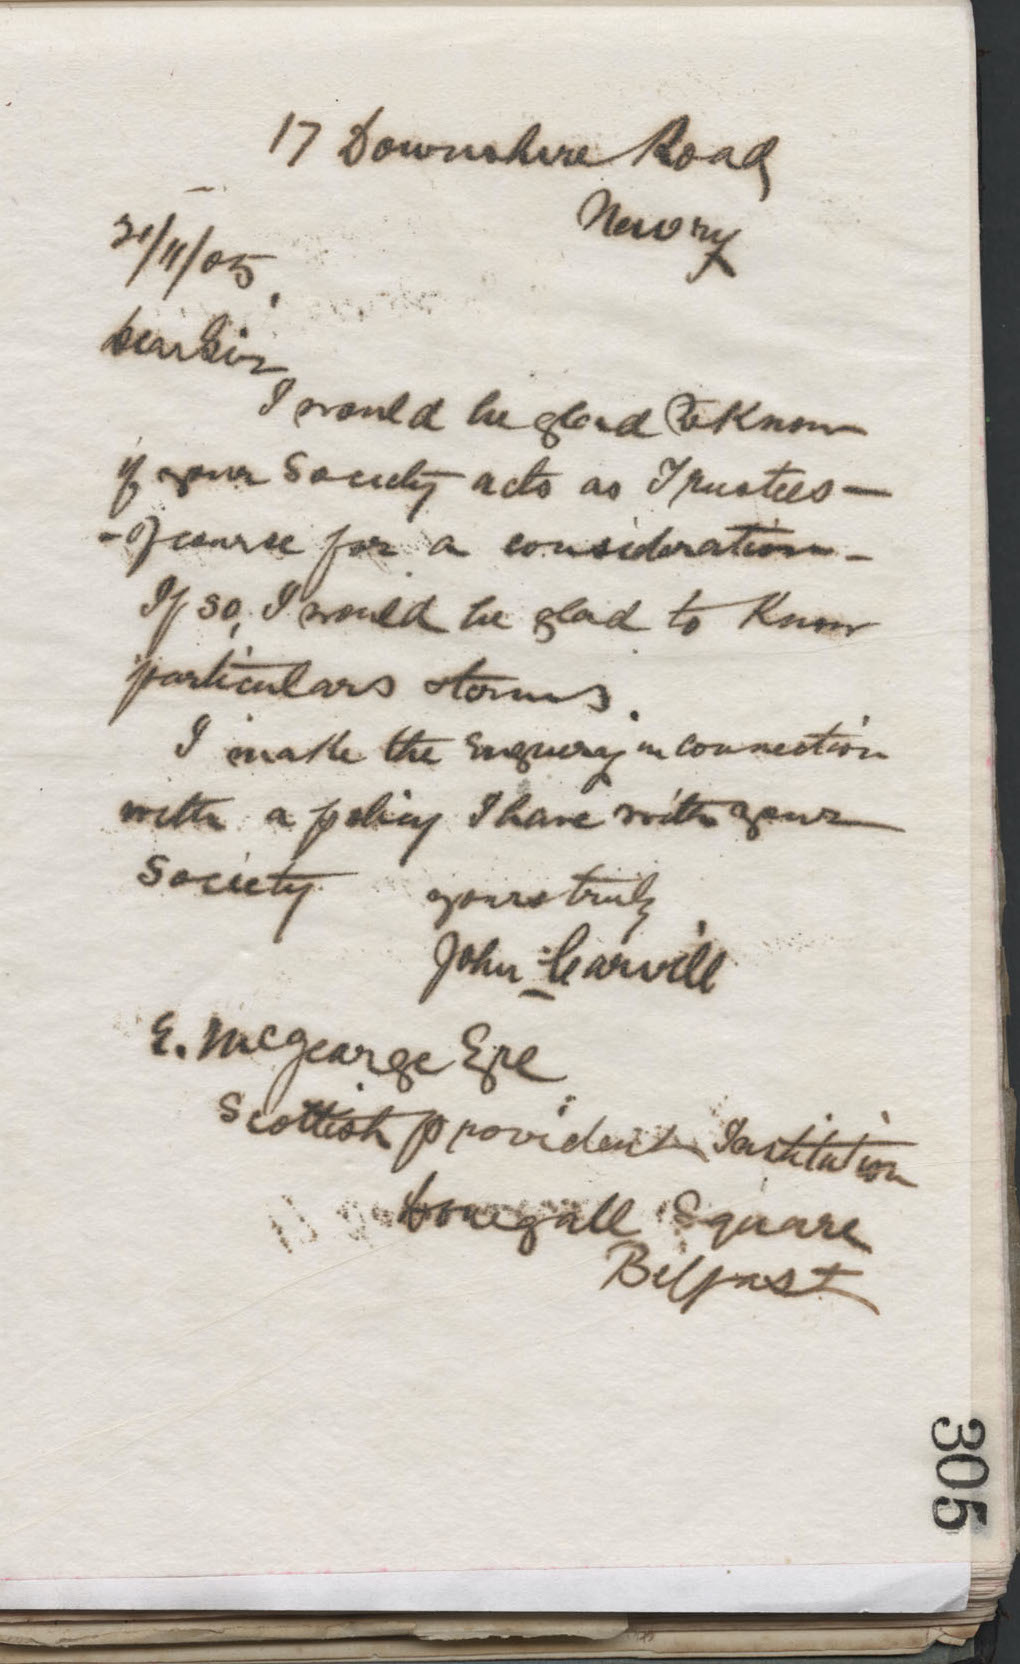 17 Downshire Road
Newry
21/11/05,
Dear Sir
I would be glad to Know
if your Society acts as Trustees —
- of course for a consideration -
If so, I would be glad to Know
particulars & terms.
I make the Enquiry in connection
with a policy I have with your
Society yours truly
John Carvill
E. McGearge Esqe
Scottish provident Institution
Donegall Square
Belfast
305